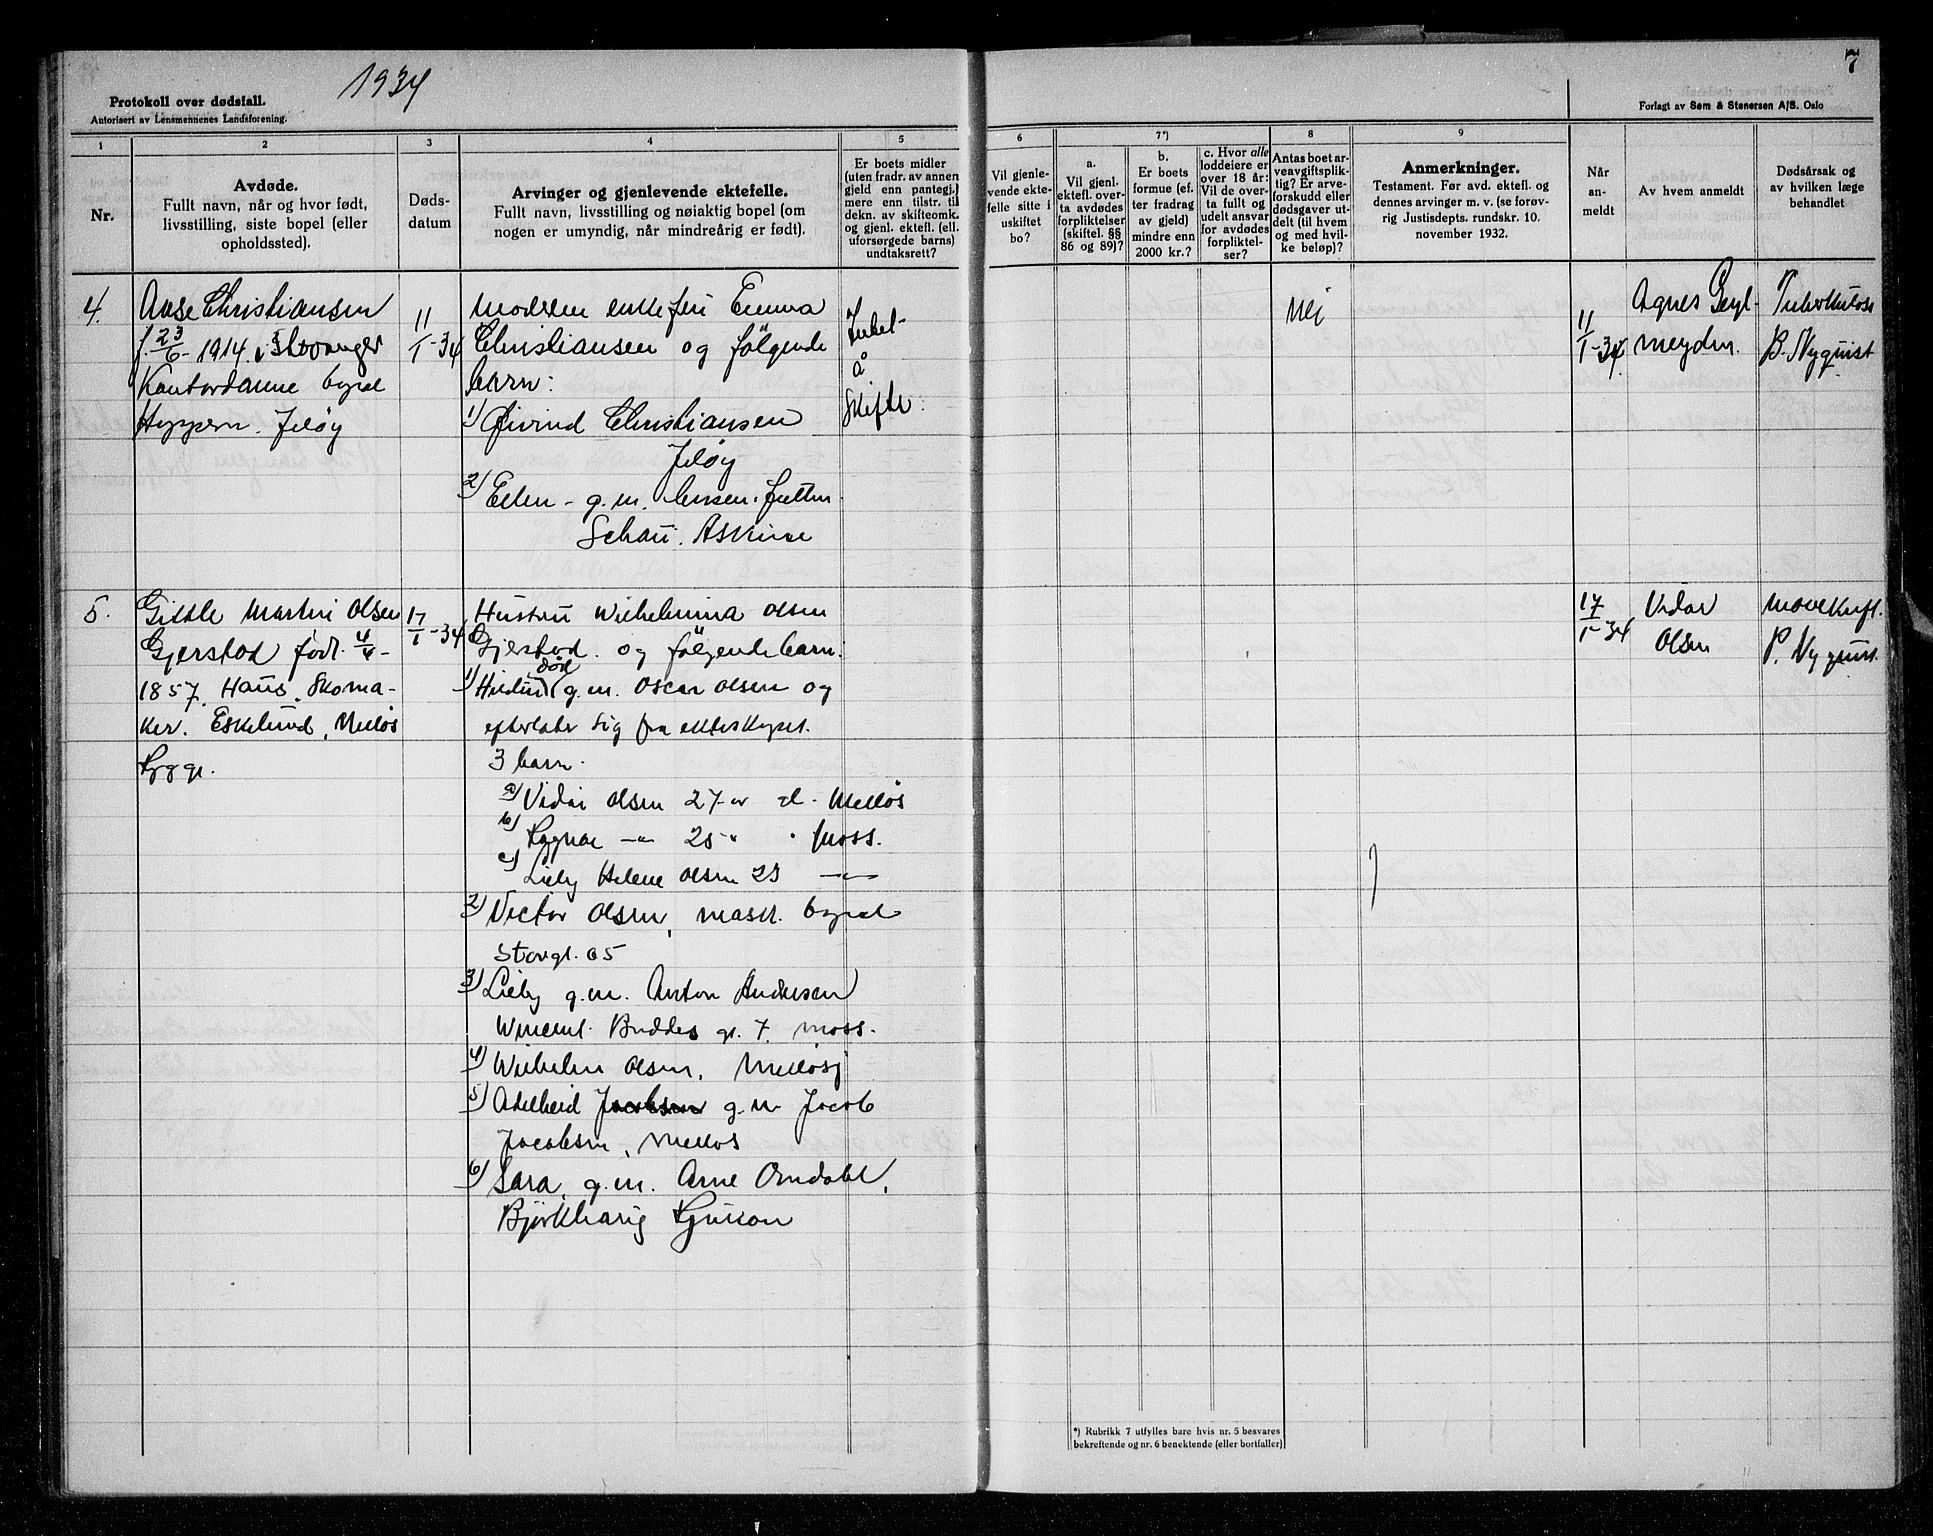 1934
7
Protokoll over dødsfall.
Autorisert av Lensmennenes Landsforening.
Forlagt av Sem & Stenersen A/S. Oslo
1
2
3
4
5
6
7*)
8
9
Nr.
Avdøde.
Fullt navn, når og hvor født,
livsstilling, siste bopel (eller
opholdssted).
Døds-
datum
Arvinger og gjenlevende ektefelle.
Fullt navn, livsstilling og nøiaktig bopel (om
nogen er umyndig, når mindreårig er født).
Er boets midler
(uten fradr. av annen
gjeld enn pantegj.)
mere enn tilstr. til
dekn. av skifteomk.
og gjenl. ektefl. (ell.
uforsørgede barns)
undtaksrett?
Vil gjenle-
vende ekte-
felle sitte i
uskiftet
bo?
a.
Vil gjenl.
ektefl. over-
ta avdødes
forpliktelser
(skiftel. §§
86 og 89)?
b.
Er boets
formue (ef.
ter fradrag
av gjeld)
mindre enn
2000 kr.?
c. Hvor alle
loddeiere er
over 18 år:
Vil de over-
ta fullt og
udelt ansvar
for avdødes
forpliktel-
ser?
Antas boet ar-
veavgiftsplik-
tig? Er arve-
forskudd eller
dødsgaver ut-
delt (til hvem
og med hvil-
ke beløp)?
Anmerkninger.
Testament. Før avd. ektefl. og
dennes arvinger m. v. (se forøv-
rig Justisdepts. rundskr. 10.
november 1932.
Når
an-
meldt
Av hvem anmeldt
Dødsårsak og
av hvilken læge
behandlet
4.
Aase Christiansen
f. 23/6- 1914. i Stavanger
Kontordame bopæl
Hoppern. Jeløy
11/1-34
Moderen enkefru Emma
Christiansen og følgende
barn:
1) Øivind Christiansen
Jeløy
2) Ellen - g.m.
Schau. Askim
Intet
å
skifte.
Nej
11/1-34
Agnes
Tuberkulose
B. Nyquist
5.
Martin Olsen
Gjerstad født. 4/4-
1857. Haus. Skoma-
ker. Eskelund, Melløs
Rygge.
17/1-34
Hustru Wilhelmina Olsen
Gjerstad. og følgende barn:
1) død g.m. Oscar Olsen og
efterlater sig fra ekteskapet.
3 barn.
a) Vidar Olsen 27 år Melløs
b) Ragnar -"- 25 " Moss.
c) Lilly Helene Olsen 23 -"-
2) Victor Olsen, mask. bopæl
Storgt. 65
3) Lilly g.m. Anton Andersen
Wincent Buddes gt. 7. Moss.
4) Wilhelm Olsen, Melløs
5) Adelheid Jacobsen g.m. Jacob
Jacobsen, Melløs
6) Sara, g.m. Arne Omdahl,
Rjukan
17/1-34
Vidar
Olsen
P. Nyquist
*) Rubrikk 7 utfylles bare hvis nr. 5 besvares
bekreftende og nr. 6 benektende (eller bortfaller)